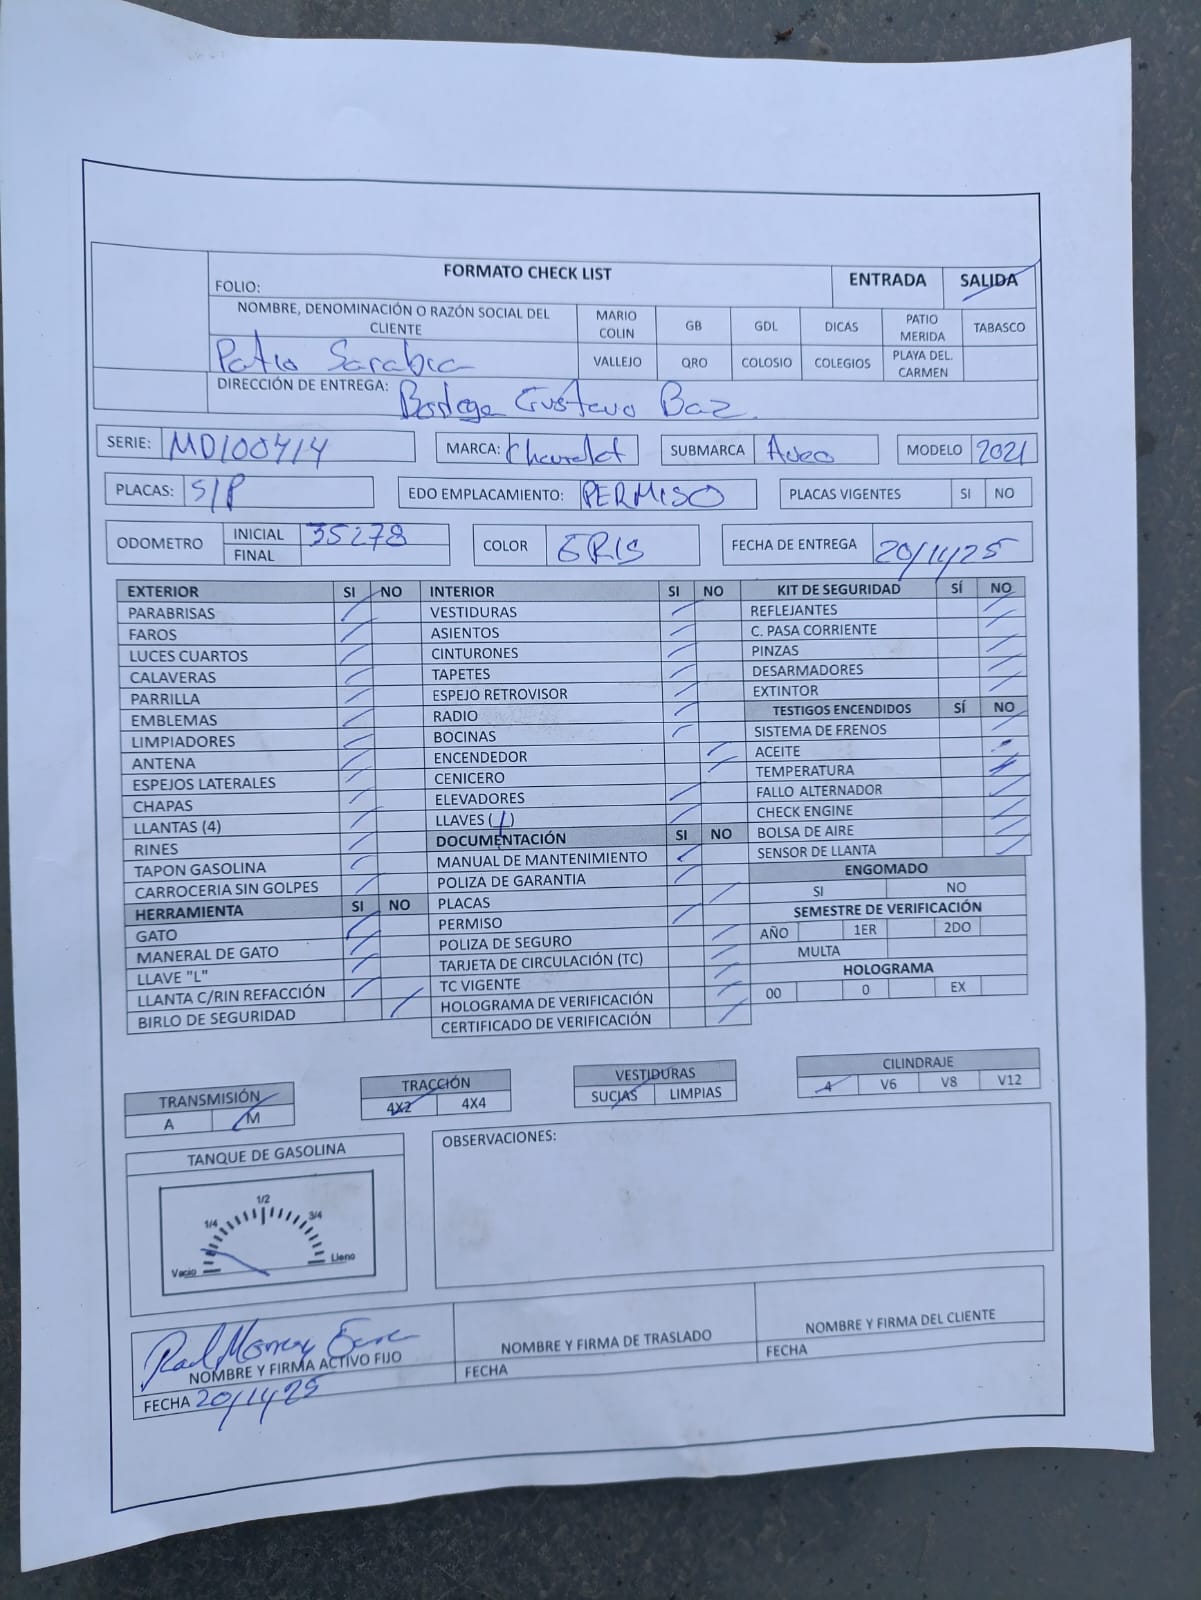 FORMATO CHECK LIST
ENTRADA SALIDA
FOLIO:
NOMBRE, DENOMINACIÓN O RAZÓN SOCIAL DEL CLIENTE
MARIO COLIN GB GDL DICAS PATIO MERIDA TABASCO
Patio Sarabia
VALLEJO QRO COLOSIO COLEGIOS PLAYA DEL. CARMEN
DIRECCIÓN DE ENTREGA: Bodega Gustavo Baz.
SERIE: MD100414 MARCA: Chevrolet SUBMARCA Aveo MODELO 2021
PLACAS: S/P EDO EMPLACAMIENTO: PERMISO PLACAS VIGENTES SI NO
ODOMETRO INICIAL 35278 COLOR GRIS FECHA DE ENTREGA 20/11/25
FINAL
EXTERIOR SI NO INTERIOR SI NO KIT DE SEGURIDAD SÍ NO
PARABRISAS VESTIDURAS REFLEJANTES
FAROS ASIENTOS C. PASA CORRIENTE
LUCES CUARTOS CINTURONES PINZAS
CALAVERAS TAPETES DESARMADORES
PARRILLA ESPEJO RETROVISOR EXTINTOR
EMBLEMAS RADIO TESTIGOS ENCENDIDOS SÍ NO
LIMPIADORES BOCINAS SISTEMA DE FRENOS
ANTENA ENCENDEDOR ACEITE
ESPEJOS LATERALES CENICERO TEMPERATURA
CHAPAS ELEVADORES FALLO ALTERNADOR
LLANTAS (4) LLAVES (1) CHECK ENGINE
RINES DOCUMENTACIÓN SI NO BOLSA DE AIRE
TAPON GASOLINA MANUAL DE MANTENIMIENTO SENSOR DE LLANTA
CARROCERIA SIN GOLPES POLIZA DE GARANTIA ENGOMADO
HERRAMIENTA SI NO PLACAS SI NO
GATO PERMISO SEMESTRE DE VERIFICACIÓN
MANERAL DE GATO POLIZA DE SEGURO AÑO 1ER 2DO
LLAVE "L" TARJETA DE CIRCULACIÓN (TC) MULTA
LLANTA C/RIN REFACCIÓN TC VIGENTE HOLOGRAMA
BIRLO DE SEGURIDAD HOLOGRAMA DE VERIFICACIÓN 00 0 EX
CERTIFICADO DE VERIFICACIÓN
TRANSMISIÓN TRACCIÓN VESTIDURAS CILINDRAJE
A M 4X2 4X4 SUCIAS LIMPIAS 4 V6 V8 V12
TANQUE DE GASOLINA OBSERVACIONES:
1/4 1/2 3/4
Vacio Lleno
NOMBRE Y FIRMA ACTIVO FIJO NOMBRE Y FIRMA DE TRASLADO NOMBRE Y FIRMA DEL CLIENTE
FECHA 20/11/25 FECHA FECHA